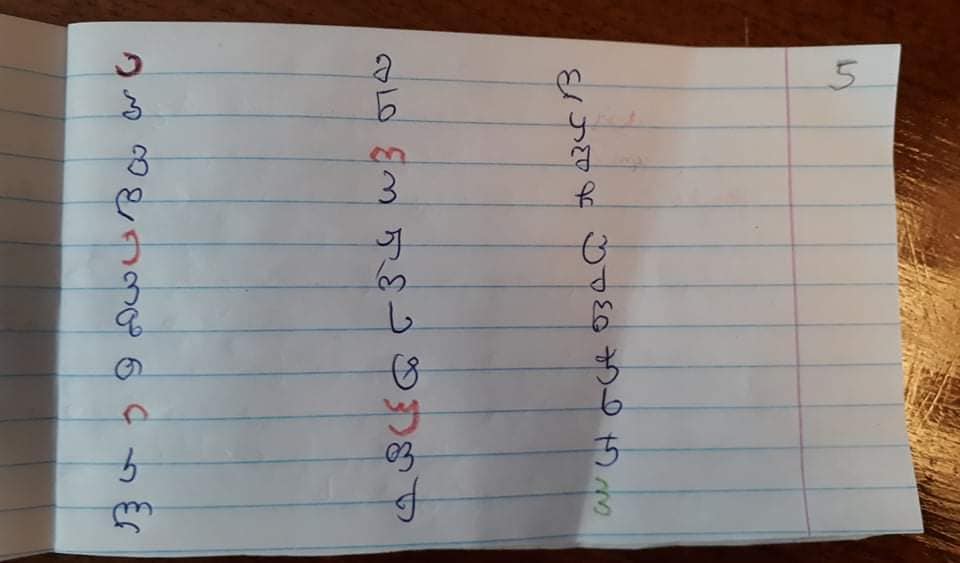 ა ბ გ დ ე ვ ზ თ ი კ ლ
მ ნ ო პ ჟ რ ს ტ უ ფ ქ
ღ ყ შ ჩ ც ძ წ ჭ ხ ჯ ჰ
5